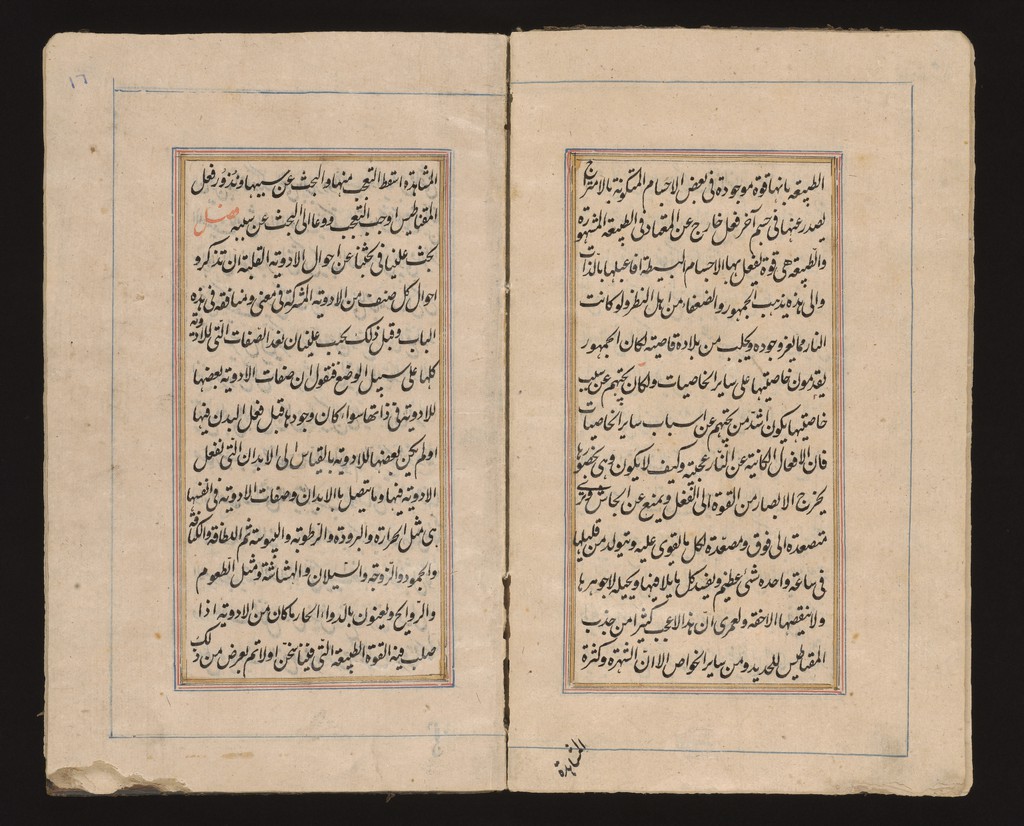 الطبيعة بانها قوة موجودة فى بعض الاجسام المتكونة بالامتزاج
يصدر عنها فى جسم آخر فعل خارج عن المعتاد فى الطبيعة المشهورة
والطبيعة هى قوة يفعل بها الاجسام البسيطة افاعيلها بالذات
والى هذه يذهب الجمهور والضعفا من اهل النظر ولو كانت
النار مما يعز وجوده ويجلب من بلادة قاصية لكان الجمهور
يقدمون خاصيتها على ساير الخاصيات ولكان بحثهم عن سبب
خاصيتها يكون اشد من بحثهم عن اسباب ساير الخاصيات
فان الافعال الكائنة عن النار عجيبة وكيف لا يكون وهى بحضورها
يخرج الابصار من القوة الى الفعل ويمنع عن
متصعدة الى فوق ومصعدة لكل ما يقوى عليه ويتولد من قليلها
فى ساعة واحده شئ عظيم ويفسد كل ما يلاقيها ويحيله لا جوهرها
ولا ينقصها الاخفة ولعمرى ان هذا لاعجب كثيرا من جذب
المقناطيس للحديد ومن ساير الخواص الا ان الشهرة وكثرة
المشاهدة
١٦
المشاهدة اسقط التعجب منها والبحث عن سببها وندور فعل
المقناطيس اوجب التعجب ودعا الى البحث عن سببه فصل
يجب علينا فى بحثنا عن احوال الادوية القلبية ان نذكر
احوال كل صنف من الادوية المشتركة فى معنى ومنافعه فى هذه
الباب وقبل ذلك يجب علينا ان نعد الصفات التى للادوية
كلها على سبيل الوضع فنقول ان صفات الادوية بعضها
للادوية فى ذاتها سوا كان وجودها قبل فعل البدن فيها
او لم يكن بعضها للادوية بالقياس الى الابدان التى تفعل
الادوية فيها وما يتصل بالابدان وصفات الادوية فى انفسها
هى مثل الحرارة والبرودة والرطوبة واليبوسة ثم اللطافة والكثافة
والجمود والزوجة والسيلان والهشاشة ومثل الطعوم
والروايح ويعنون بالدواء الحار ما كان من الادوية اذا
صلب فيه القوة الطبيعة التى فينا نحن اولا ثم يعرض من ذلك